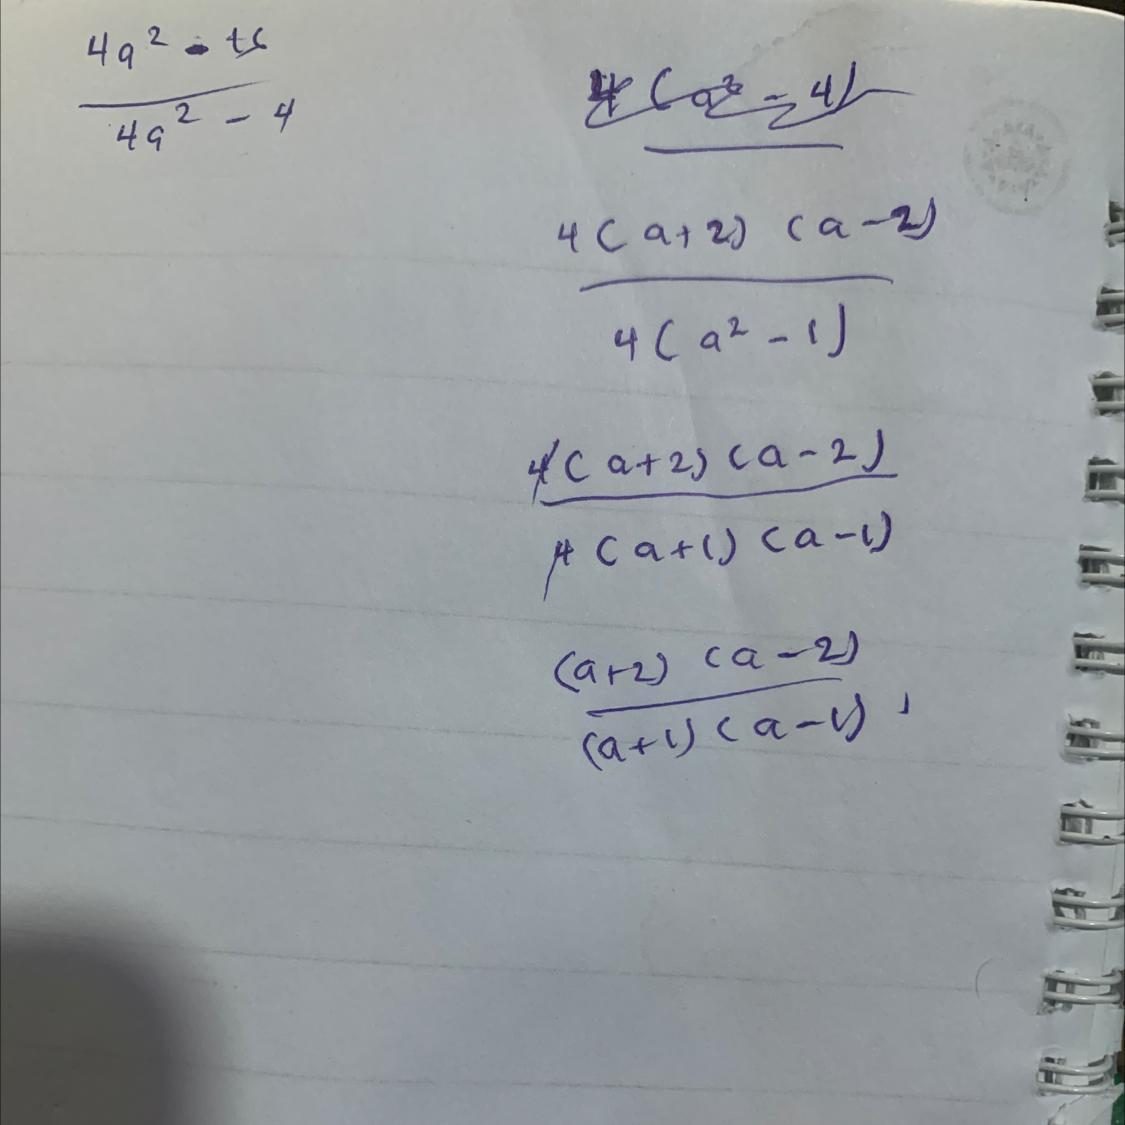 4a² - 16
4a² - 4
4(a² - 4)
4(a+2) (a-2)
4(a² - 1)
4(a+2)(a-2)
4(a+1)(a-1)
(a+2) (a-2)
(a+1)(a-1)